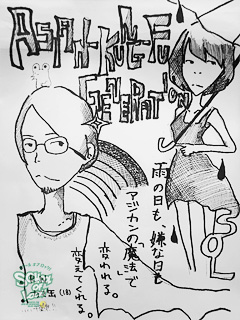 ASIAN KUNG-FU
GENERATION
雨の日も、嫌な日も
アジカンの「魔法」で
変われる。
変えてくれる。
SOL